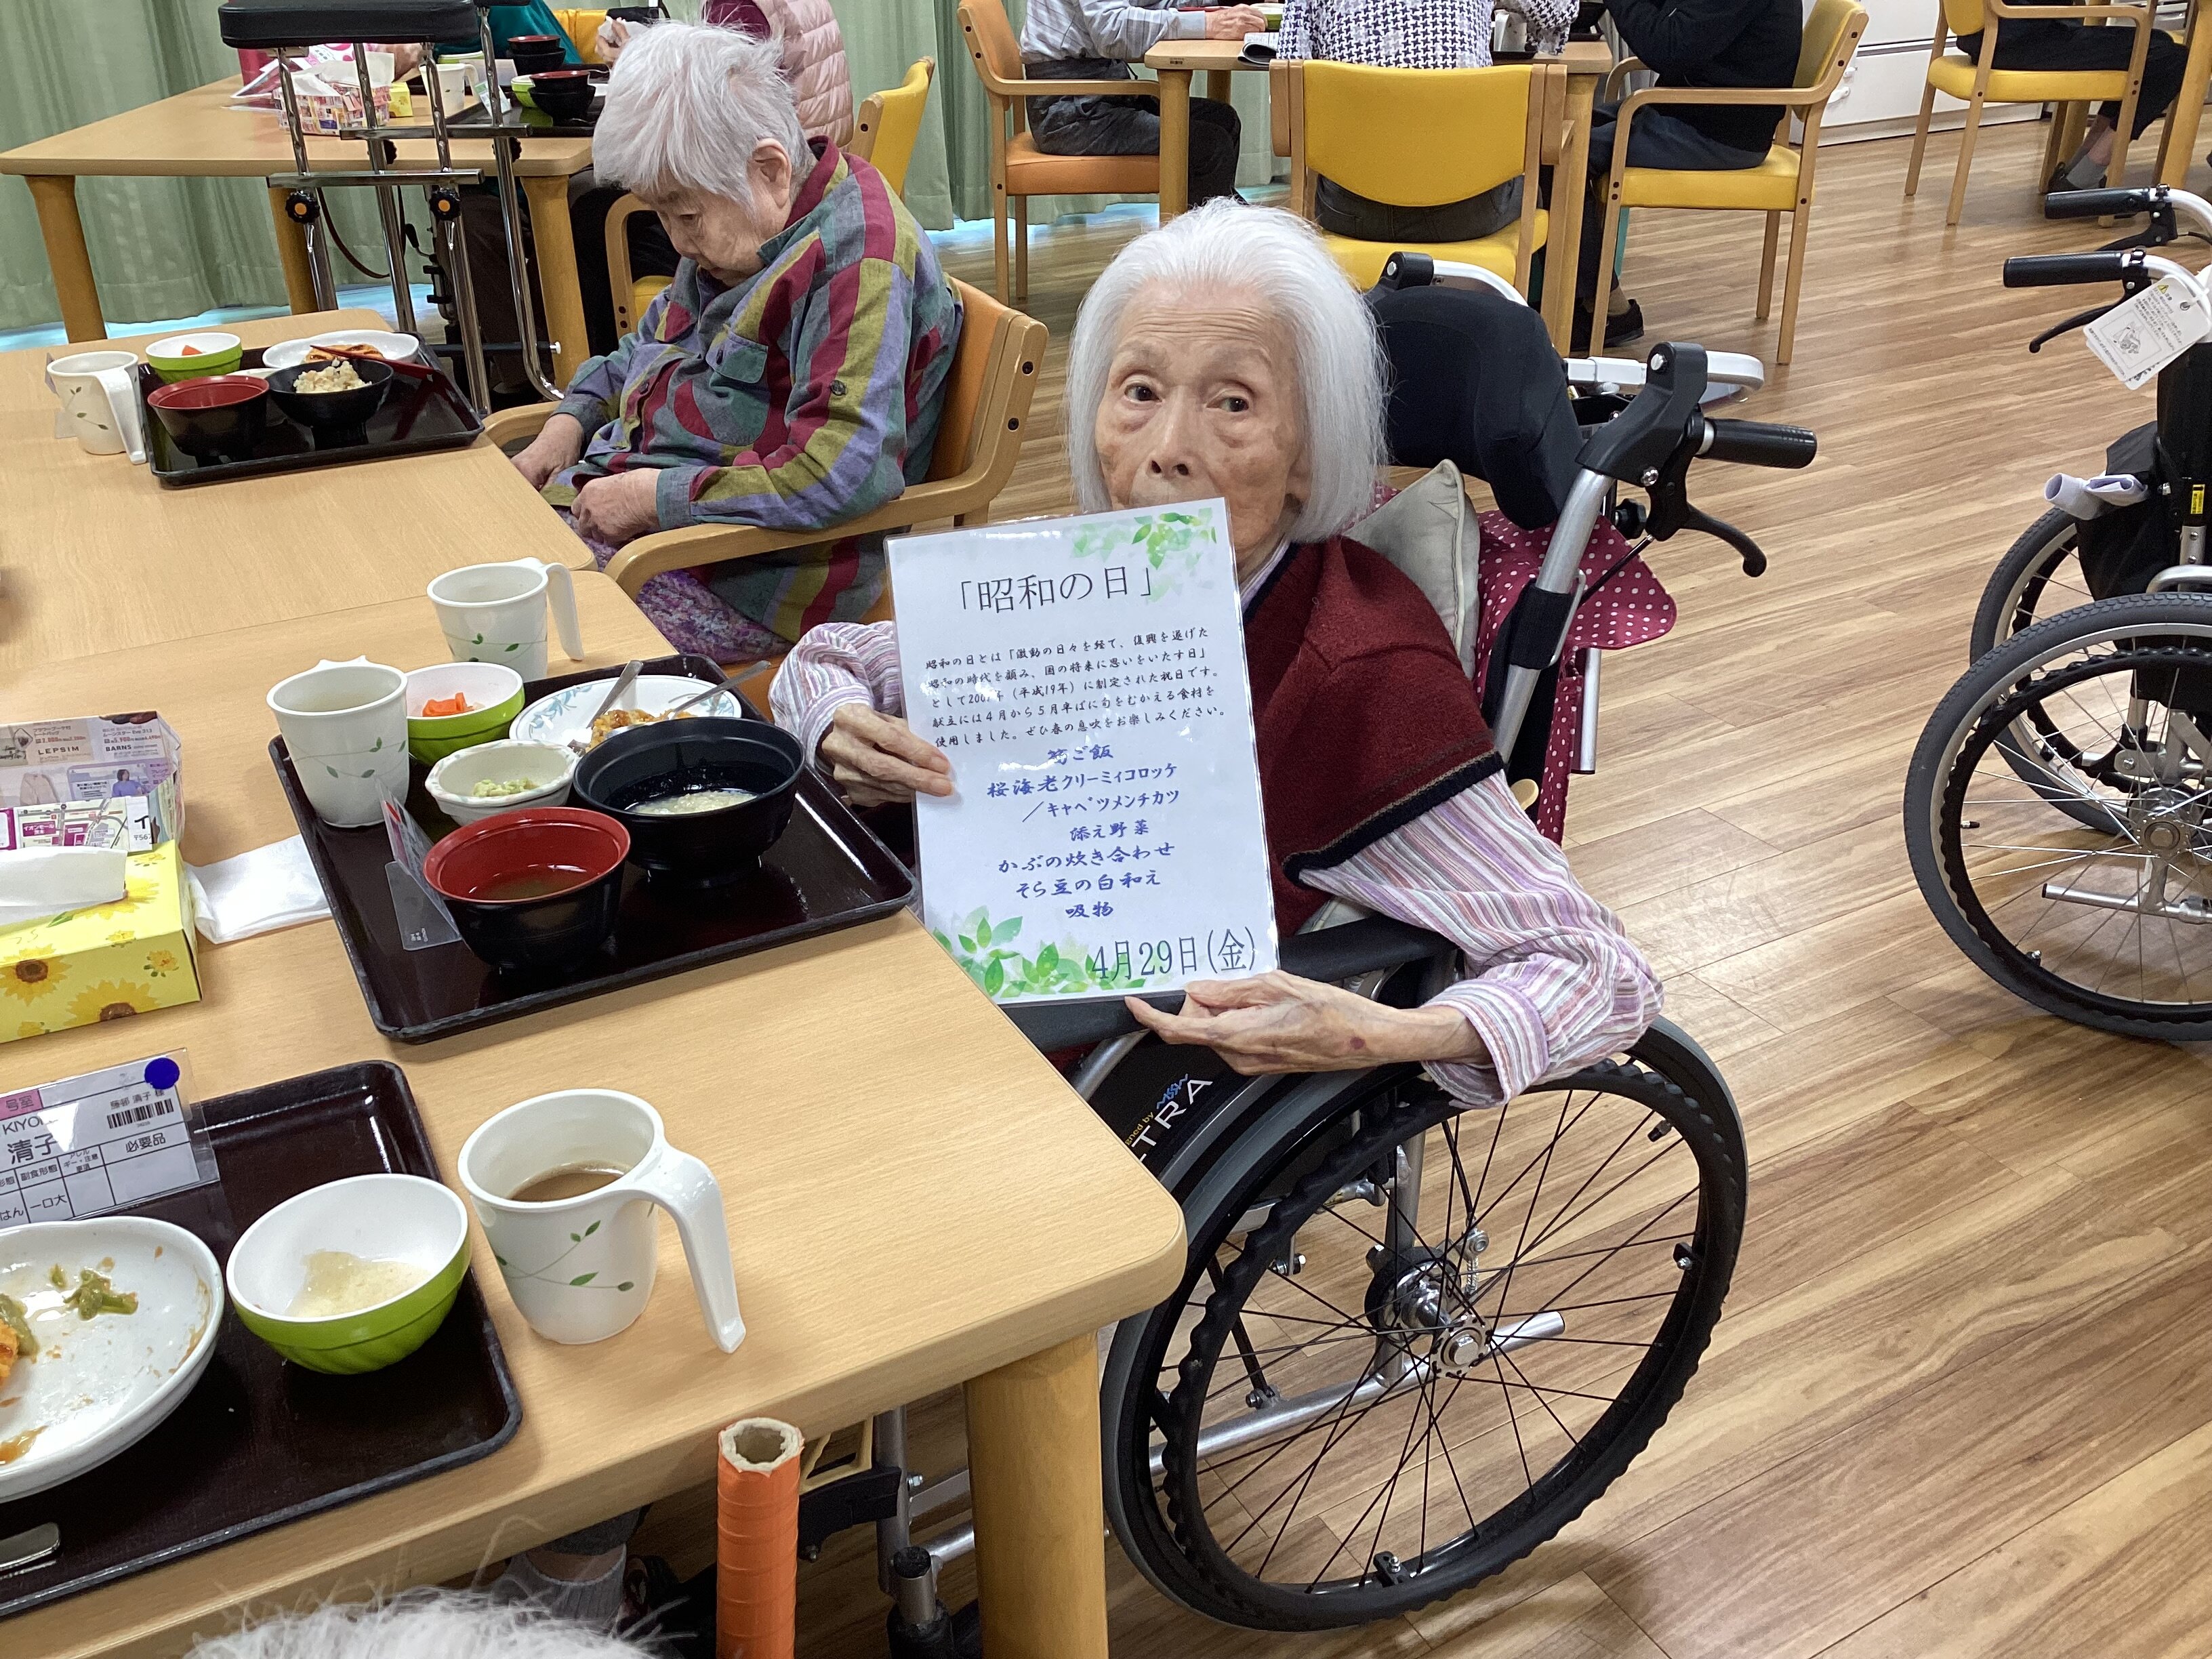 「昭和の日」
昭和の日とは「激動の日々を経て、復興を遂げた
昭和の時代を顧み、国の将来に思いをいたす日」
として2007年(平成19年)に制定された祝日です。
献立には4月から5月半ばに旬をむかえる食材を
使用しました。ぜひ春の息吹をお楽しみください。
筍ご飯
桜海老クリーミィコロッケ
/キャベツメンチカツ
添え野菜
かぶの炊き合わせ
そら豆の白和え
吸物
4月29日(金)
LEPSIM
BARNS
号室
KIYO
清子
必要品
副食形態
はん
一口大
TRA